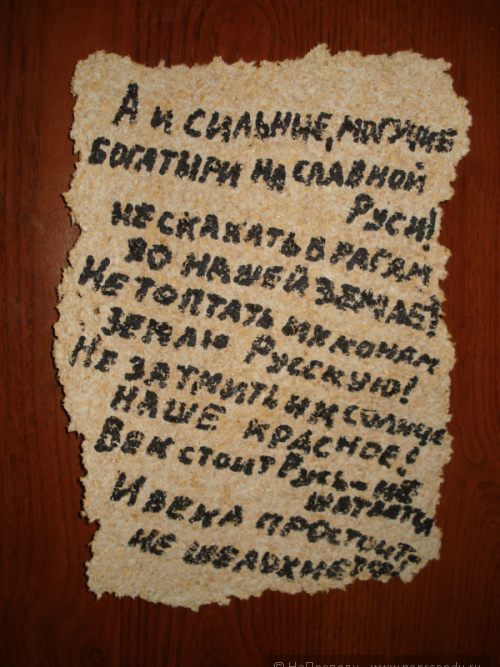 А и сильные, могучие
богатыри на славной
Руси!
не скакать врагам
по нашей земле!
Не топтать их коням
землю Русскую!
Не затмить им солнце
наше красное!
Век стоит Русь - не
шатается
И века простоит
не шелохнется!
© НеПропаду